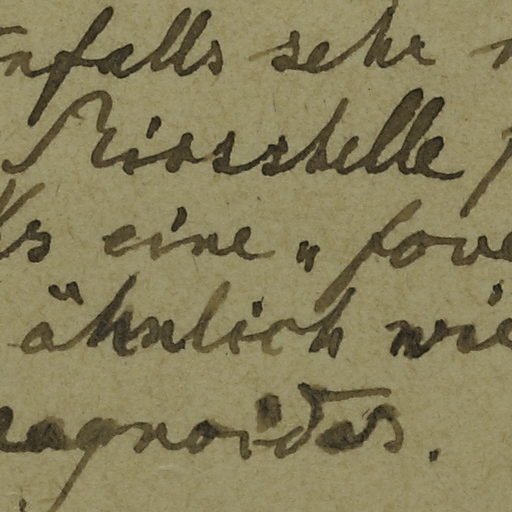 nfalls sehr
Rissstelle
ls eine „fove
ähnlich wie
agnoides.